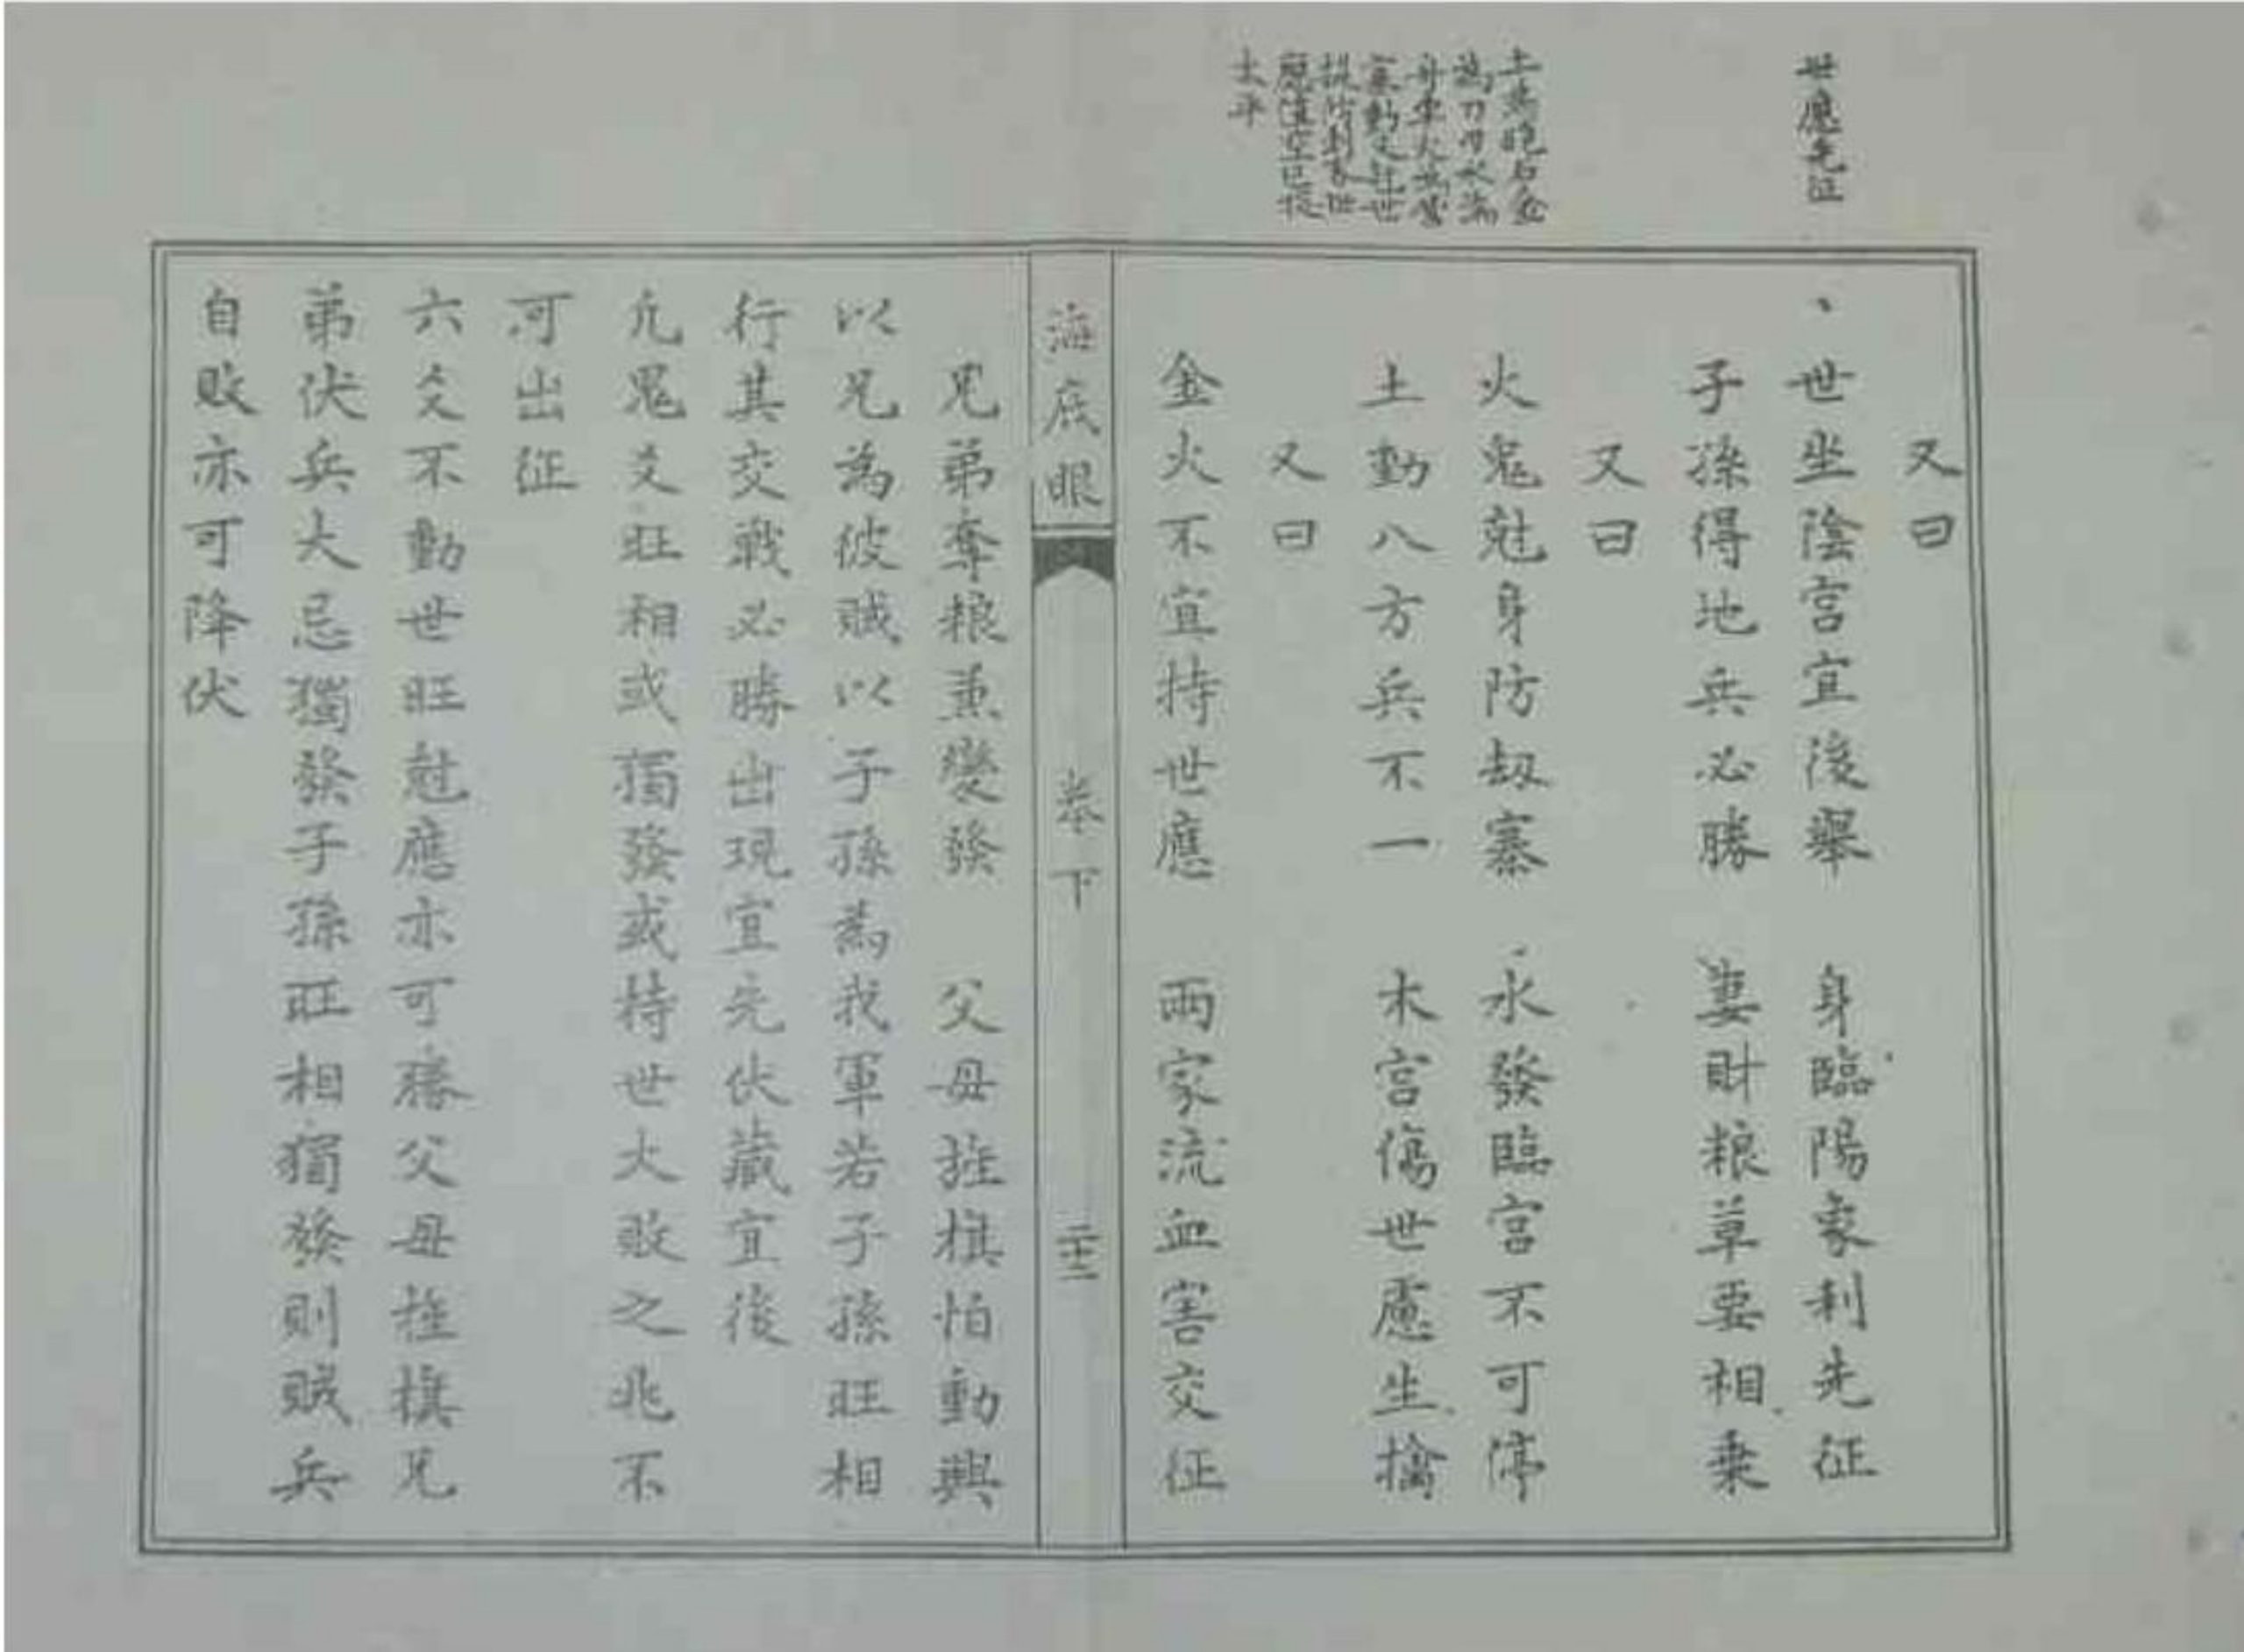 世應先征
又曰
、世坐陰宮宜後舉　身臨陽象利先征
子孫得地兵必勝　妻財粮草要相乗
又曰
火鬼尅身防刧寨　水發臨宮不可停
土動八方兵不一　木宮傷世慮生擒
又曰
金火不宜持世應　兩家流血害交征
土為炮石金
為刀刃水為
舟車火為營
寨動文尅世
提防刧寨世
應値空亡從
太平
海底眼　卷下　二十三
兄弟奪粮𠔥變發　父母旌旗怕動興
以兄為彼賊以子孫為我軍若子孫旺相
行其交戰必勝出現宜先伏藏宜後
凢鬼爻旺相或獨發或持世大敗之兆不
可出征
六爻不動世旺尅應亦可勝父母旌旗兄
弟伏兵大忌獨發子孫旺相獨發則賊兵
自敗亦可降伏